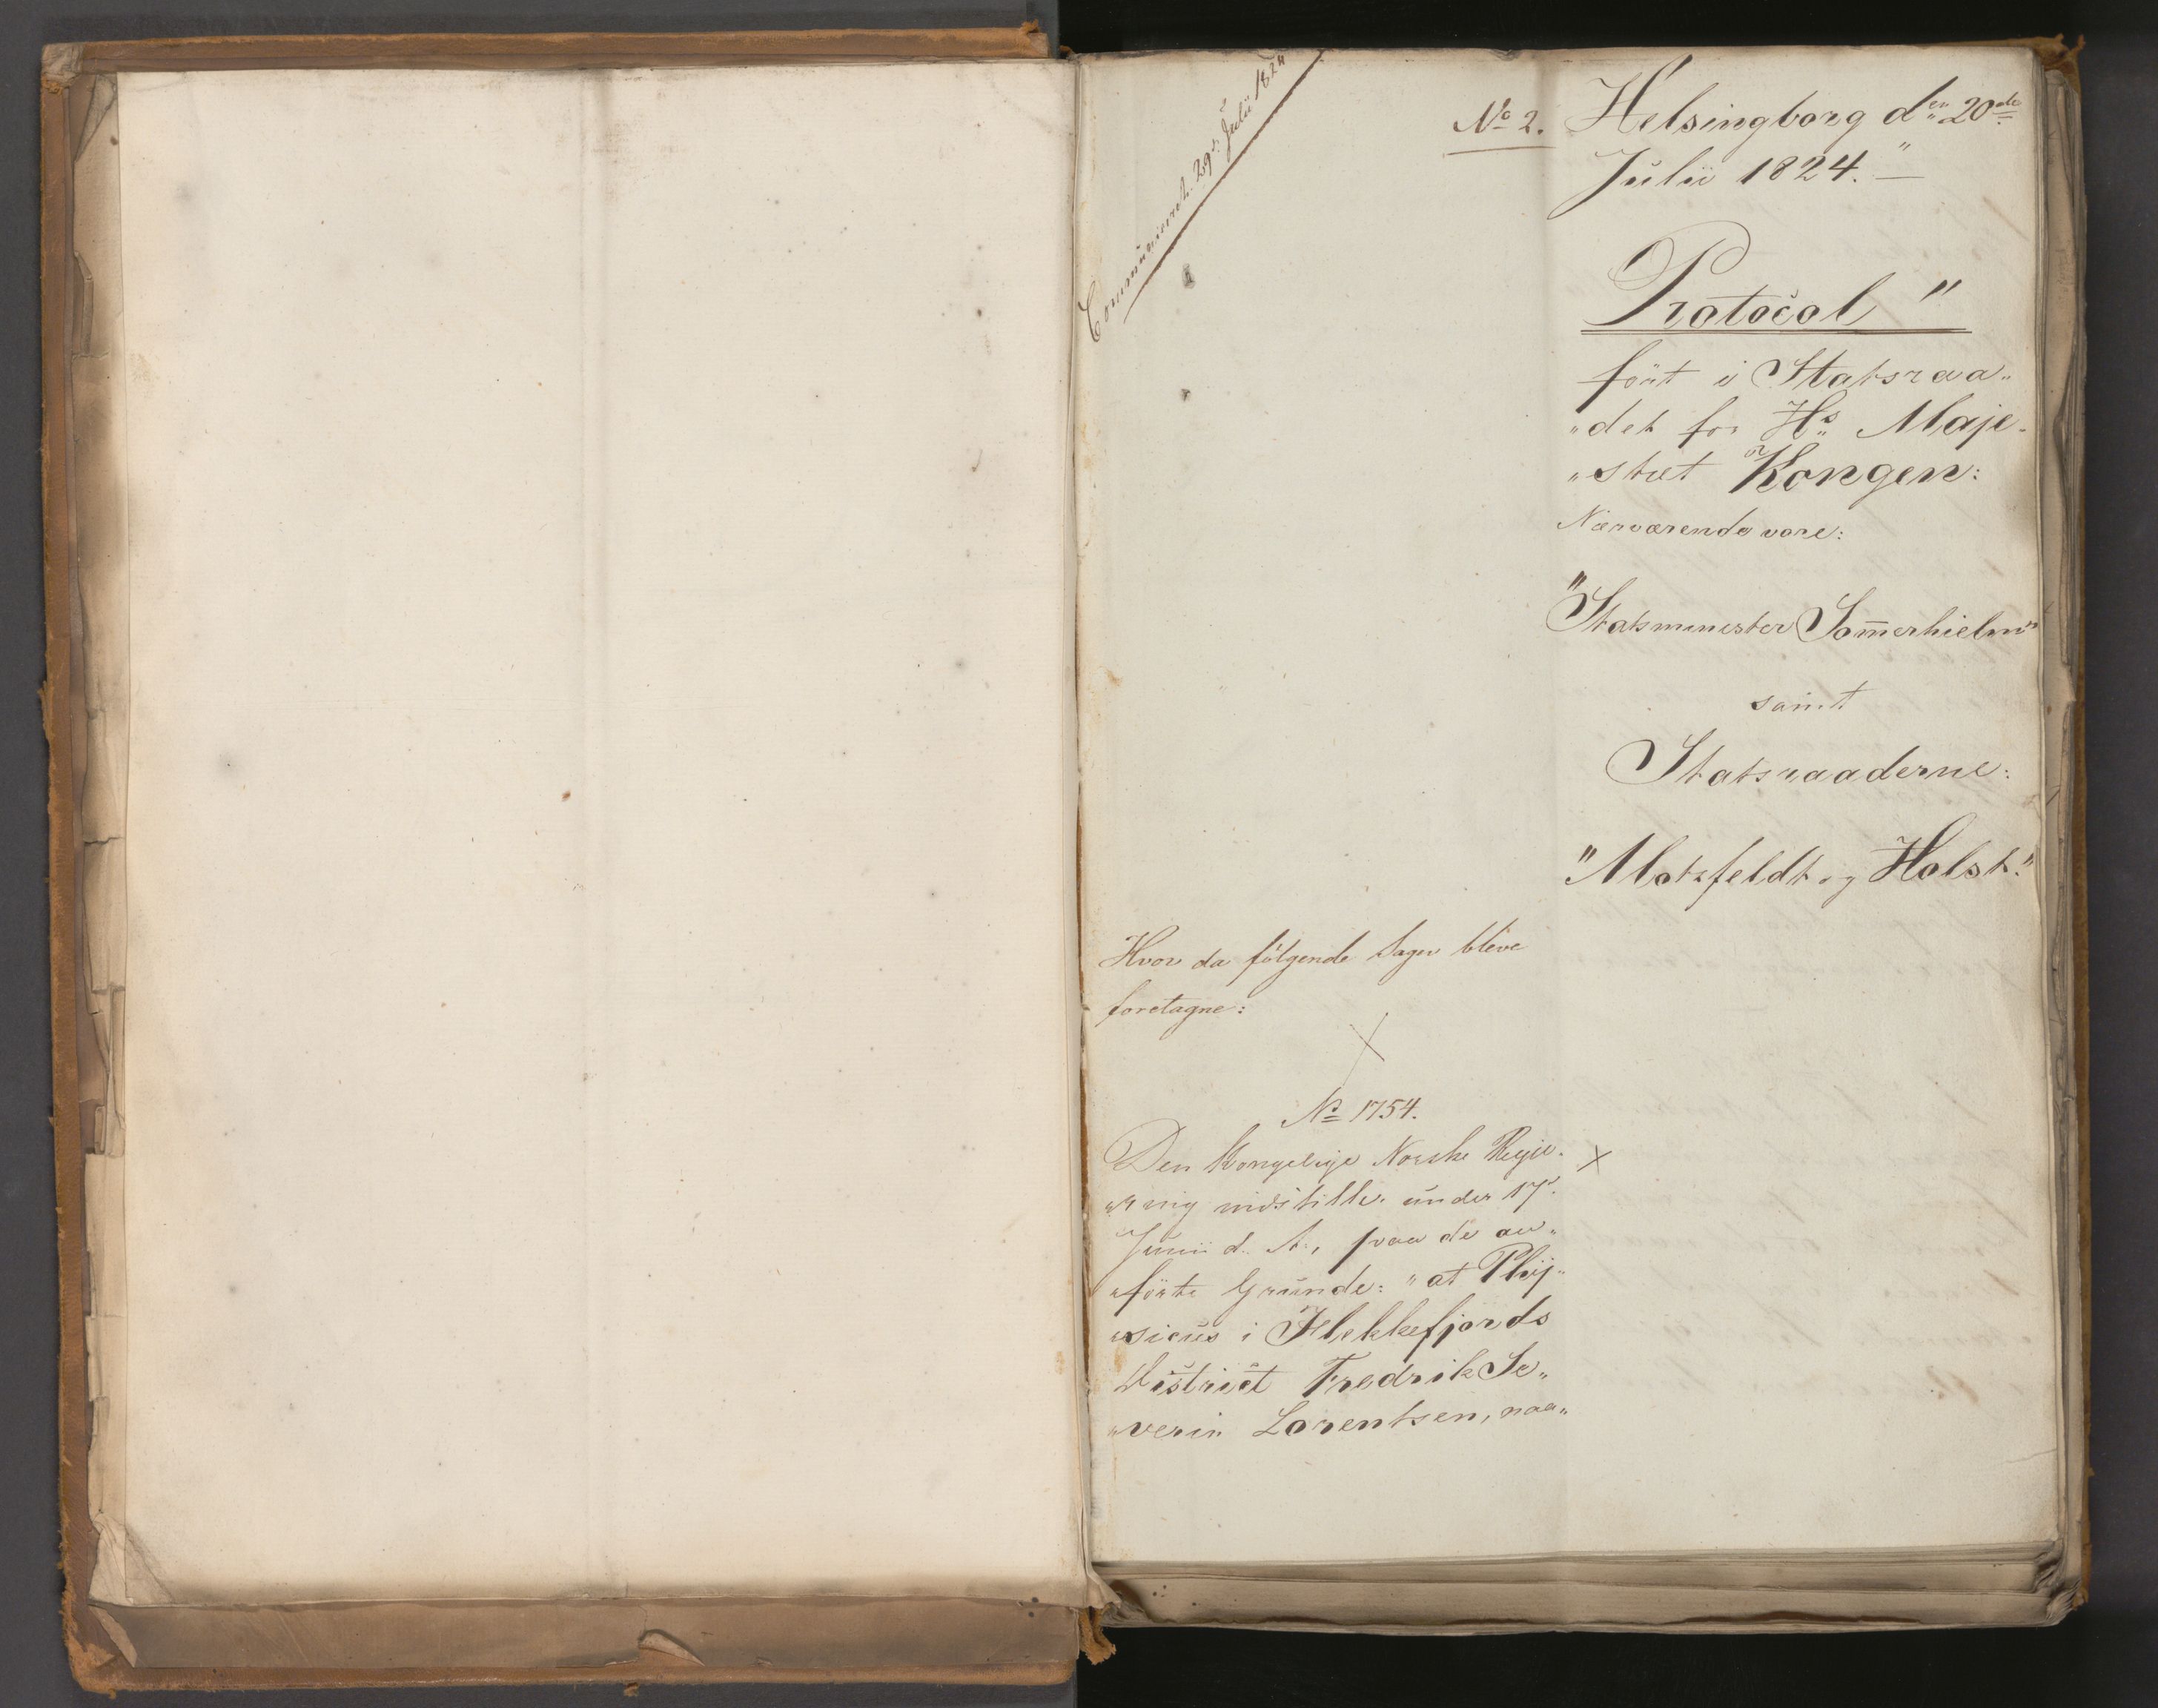 Communiceret 29de Julii 1824
No 2.
Helsingborg den 20de
Julii 1824.
Protocol"
fört i Statsraa„
„det for Hs Maje„
„stæt Kongen:
Nærværende vare:
"Statsminister Som̅erhielm"
samt
Statsraaderne:
"Motzfeldt og Holst."
Hvor da fölgende Sager bleve
foretagne:
No 1754.
Den Kongelige Norske Regje„
„ring indstiller under 17.
Junii d. A., paa de an„
„förte Grunde: "at Phÿ„
„sicus i Flekkefjords
District Fredrik Se„
„verin Lorentzen, naa„